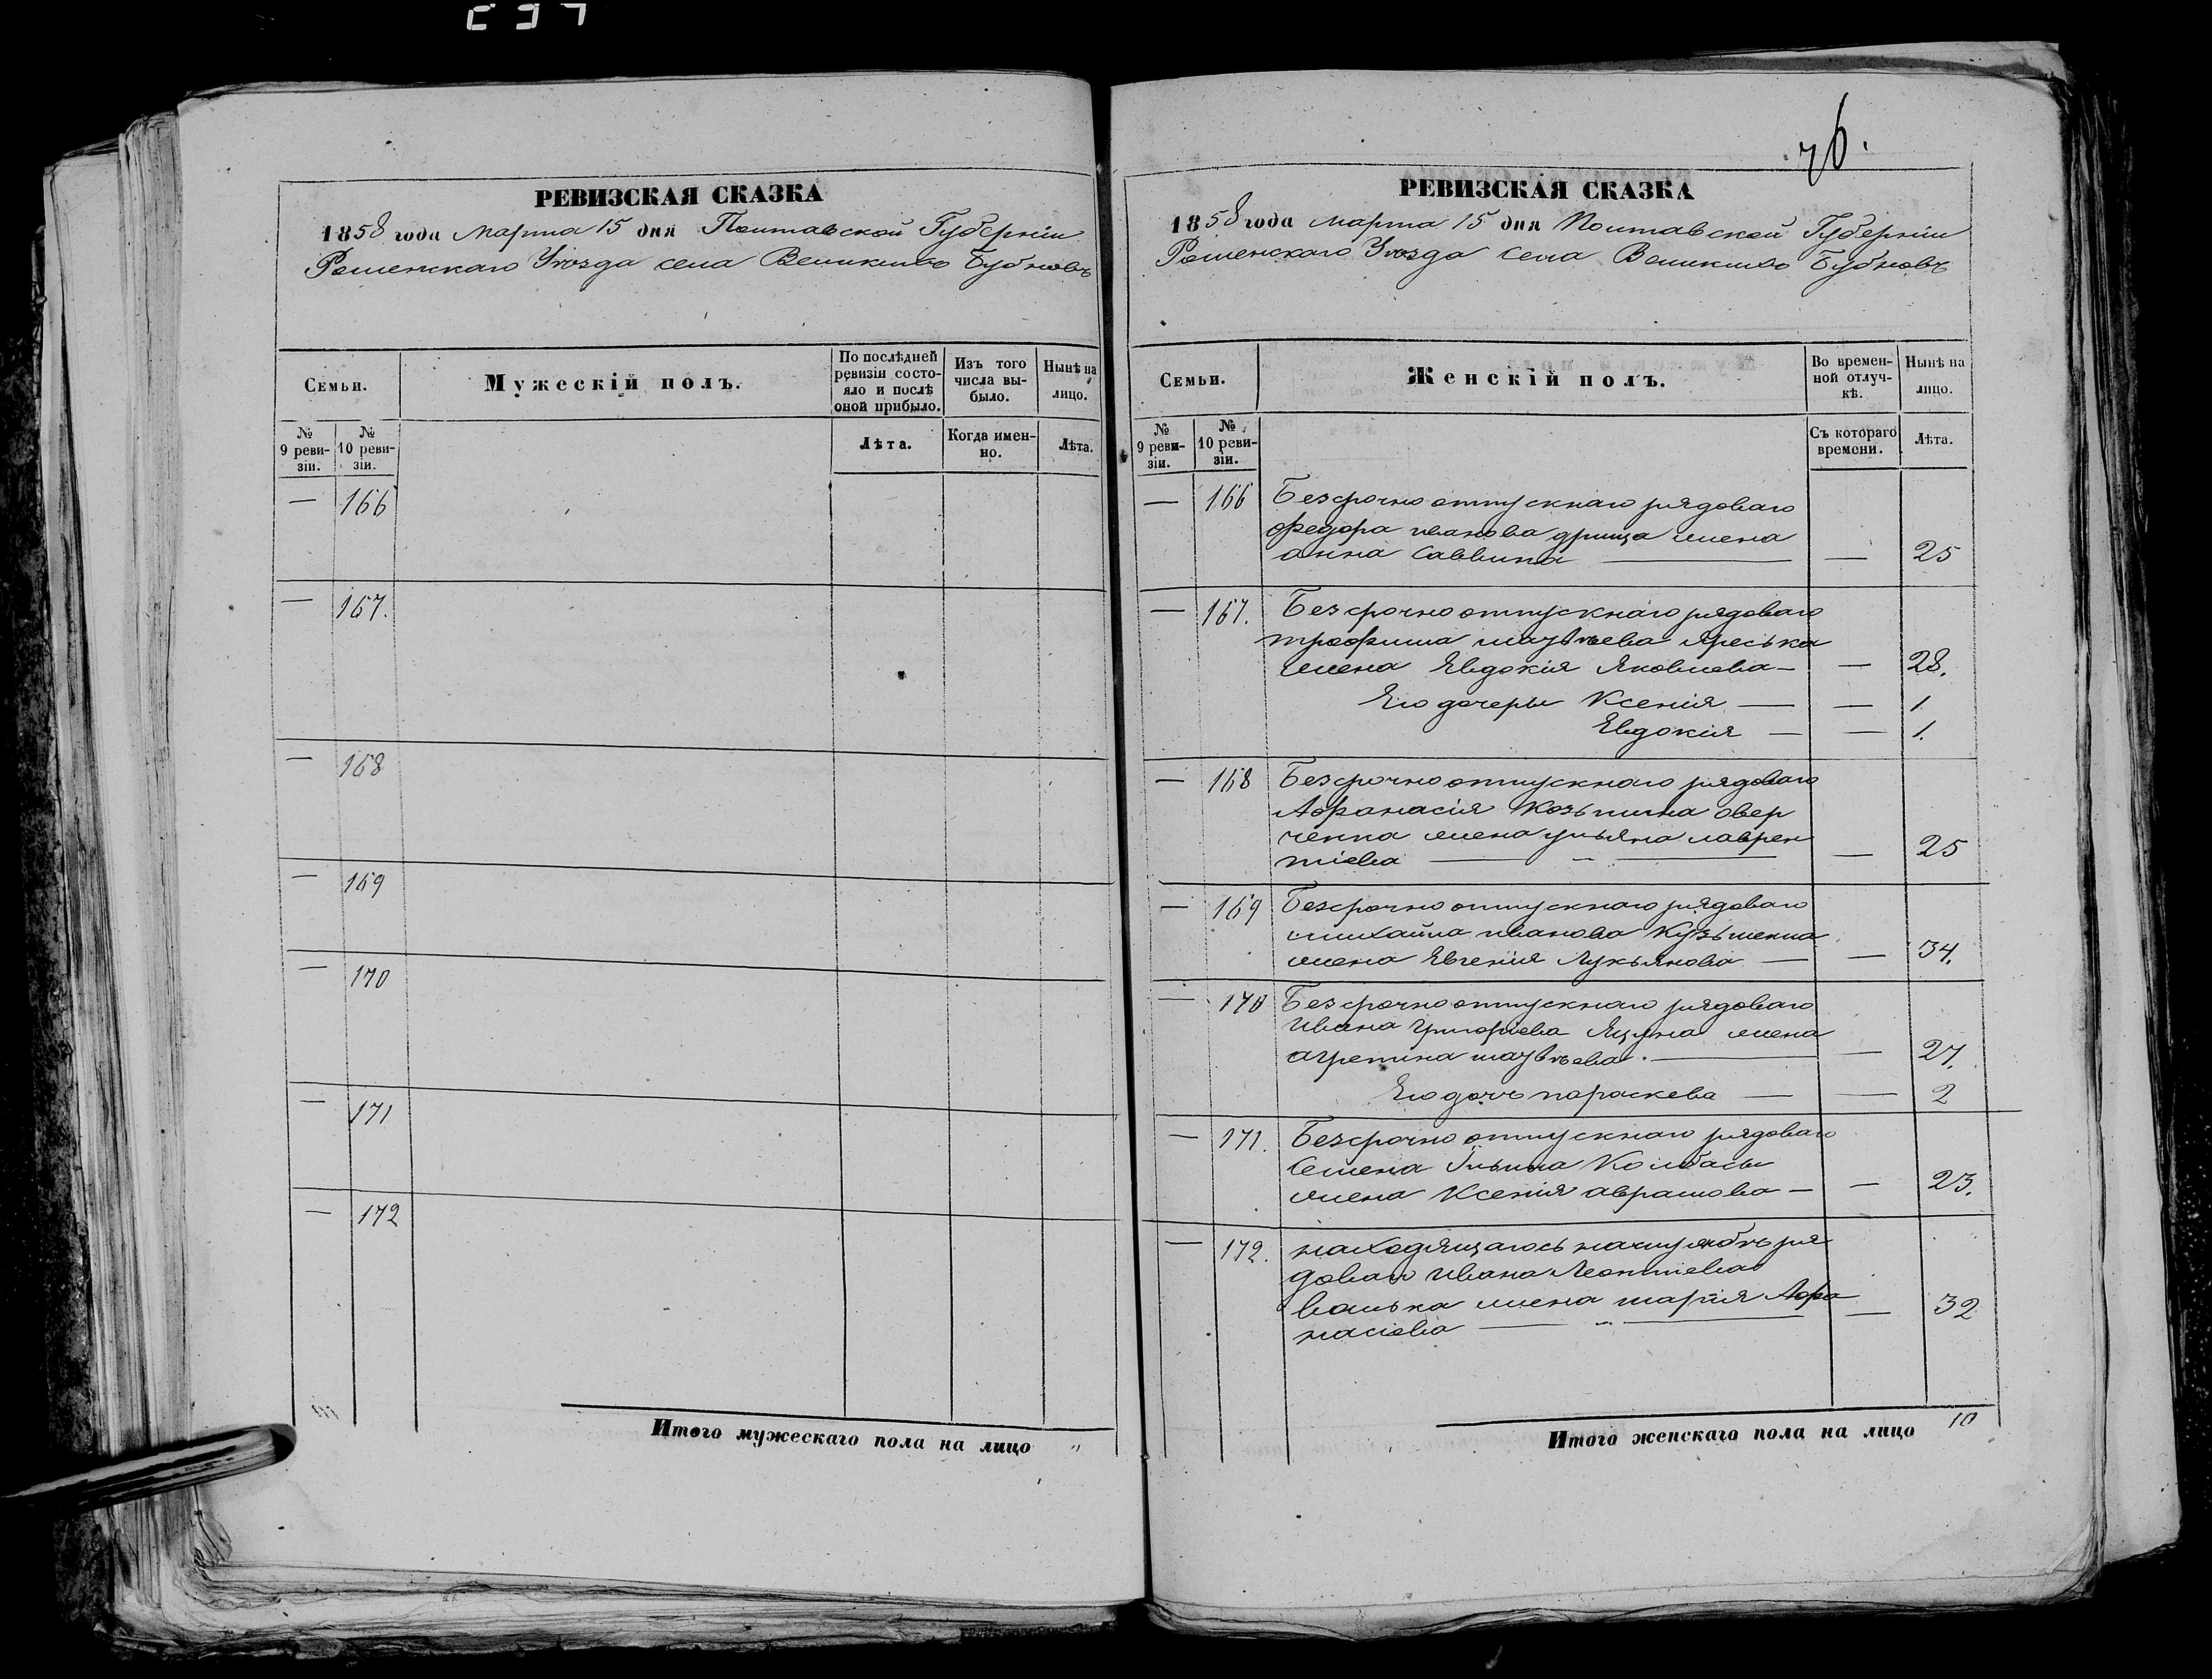 76.
РЕВИЗСКАЯ СКАЗКА
1858 года Марта 15 дня Полтавской Губерніи
Роменскаго Уѣзда села Великихъ Бубновъ
Семьи.
Мужескій полъ.
По послѣдней ревизіи состояло и послѣ оной прибыло.
Изъ того числа выбыло.
Нынѣ на лицо.
№ 9 ревизіи.
№ 10 ревизіи.
Лѣта.
Когда именно.
Лѣта.
— 166
— 167.
— 168
— 169
— 170
— 171
— 172
Итого мужескаго пола на лицо "
РЕВИЗСКАЯ СКАЗКА
1858 года марта 15 дня Полтавской Губерніи
Роменскаго Уѣзда села Великихъ Бубновъ
Семьи.
Женскій полъ.
Во временной отлучкѣ.
Нынѣ на лицо.
№ 9 ревизіи.
№ 10 ревизіи.
Съ котораго времени.
Лѣта.
— 166 Безсрочно отпускнаго рядоваго
федора иванова жена
анна Саввина — — 25
— 167. Безсрочно отпускнаго рядоваго
трофима матвѣева Яреська
жена Евдокія Яковлева — — 28.
Его дочеры Ксенія — — 1.
Евдокія — — 1.
— 168 Безсрочно отпускнаго рядоваго
Афанасія Козьмина овер
ченка жена ульяна лаврен
тіева — " — — 25
— 169 Безсрочно отпускнаго рядоваго
михайла иванова Кузьменка
жена Евгенія Лукьянова — — 34.
— 170 Безсрочно отпускнаго рядоваго
Ивана Григоріева Яцуна жена
агрепина матвѣева. — — 27.
Его дочь параскева — — 2
— 171. Безсрочно отпускнаго рядоваго
Семена Ильина Колбасы
жена Ксенія аврамова — — 23.
— 172. находящагось на службѣ ря
доваго Ивана Леонтіева
жена марія Афа
насіева — " — — 32
Итого женскаго пола на лицо 10